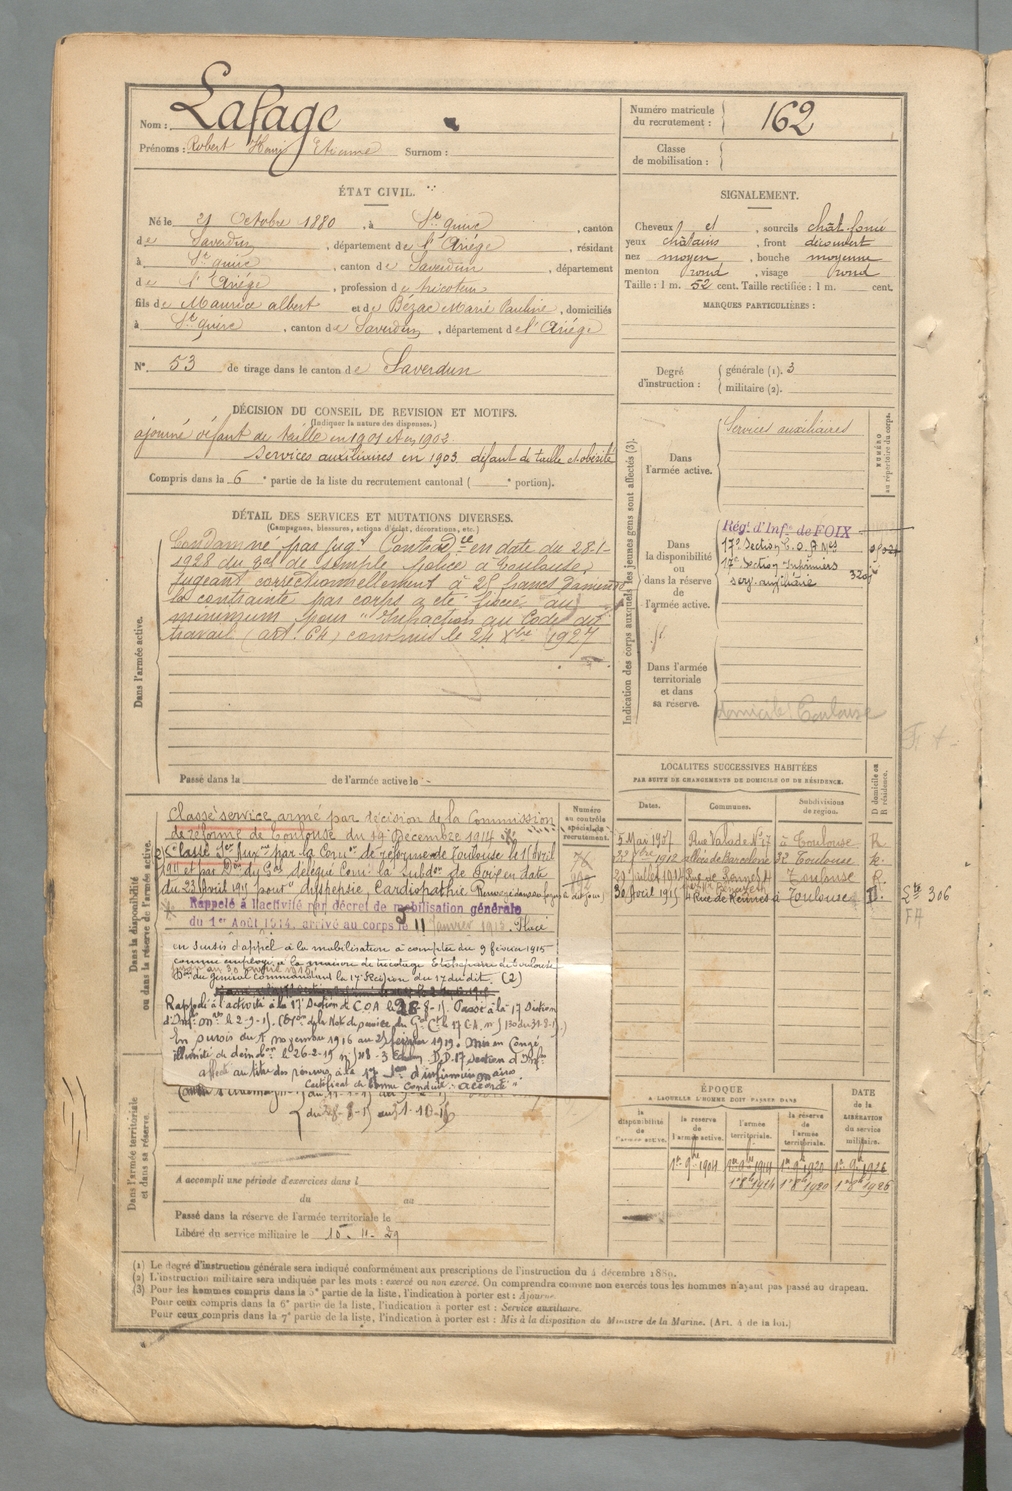 Nom : Lafage
Prénoms : Robert Henri Etienne Surnom :
Numéro matricule du recrutement : 162
Classe de mobilisation :
ÉTAT CIVIL.
Né le 21 Octobre 1880, à Ste quirc, canton
de Saverdun, département de l'Ariége, résidant
à Ste quirc, canton de Saverdun, département
de l'Ariége, profession de tricoteur
fils de Maurice albert et de Bézac Marie Pauline, domiciliés
à Ste quirc, canton de Saverdun, département de l'Ariége
N° 53 de tirage dans le canton de Saverdun
SIGNALEMENT.
Cheveux et, sourcils chât. foncé
yeux châtains, front découvert
nez moyen, bouche moyenne
menton rond, visage rond
Taille : 1 m. 52 cent. Taille rectifiée : 1 m. cent.
MARQUES PARTICULIÈRES :
Degré d'instruction : générale (1). 3
militaire (2).
DÉCISION DU CONSEIL DE REVISION ET MOTIFS.
(Indiquer la nature des dispenses.)
ajourné défaut de taille en 1901 et en 1902
services auxiliaires en 1903 défaut de taille et obésité
Compris dans la 6e partie de la liste du recrutement cantonal ( e portion).
DÉTAIL DES SERVICES ET MUTATIONS DIVERSES.
(Campagnes, blessures, actions d'éclat, décorations, etc.)
Dans l'armée active.
Condamné par jugt Contradre en date du 28-1-
1928 du bal de simple police à Toulouse
jugeant correctionnellement à 25 francs d'amende
la contrainte par corps a été fixée au
minimum pour Infraction au Code du
travail (art. 64) commis le 24 Xbre 1927
Passé dans la de l'armée active le
Indication des corps auxquels les jeunes gens sont affectés (3).
NUMÉRO au répertoire du corps.
Dans l'armée active.
Services auxiliaires
Dans la disponibilité ou dans la réserve de l'armée active.
Régt d'Infie de FOIX
17e Section C. O. A
17e Section Infirmiers
serv. auxiliaire
Dans l'armée territoriale et dans sa réserve.
domicile Toulouse
LOCALITÉS SUCCESSIVES HABITÉES
PAR SUITE DE CHANGEMENTS DE DOMICILE OU DE RÉSIDENCE.
Dates. Communes. Subdivisions de région. D domicile ou R résidence.
5 Mai 1907 Rue Valade N° 27 à Toulouse R
1912 allées de Barcelone 32 Toulouse R.
Toulouse R.
30 avril 1915 4 Rue de Rennes à Toulouse D.
Ste 306
FA
Dans la disponibilité ou dans la réserve de l'armée active.
Numéro au contrôle spécial du recrutement.
Classé service armé par décision de la Commission
de réforme de Toulouse du 19 Décembre 1914
Classé Ser auxre par la Comon de réforme de Toulouse le 1er avril
1915 et par Don du Gal délégué Comt la Subdon de Foix en date
du 23 avril 1915 pour dyspepsie, Cardiopathie
Rappelé à l'activité par décret de mobilisation générale
du 1er Août 1914, arrivé au corps le 11 janvier 1915.
en sursis d'appel à la mobilisation à compter du 9 février 1915
comme employé à la maison de tricotage
Don du Général commandant la 17e Région du 17 du dit. (2)
Rappelé à l'activité à la 17e Section de C.O.A le 28-8-15. Passé à la 17e Section
d'Infirs mres le 2-9-15. du 31-8-15.)
En sursis du novembre 1916 au février 1919. Mis en Congé
illimité de démobon le 26-2-19
affecté au titre des réserves à la 17e Son d'infirmiers
Certificat de bonne Conduite : accordé.
Dans l'armée territoriale et dans sa réserve.
A accompli une période d'exercices dans l
du au
Passé dans la réserve de l'armée territoriale le
Libéré du service militaire le 10-11-29
ÉPOQUE
A LAQUELLE L'HOMME DOIT PASSER DANS
la disponibilité de l'armée active.
la réserve de l'armée active. 1er 9bre 1904
l'armée territoriale. 1er 9bre 1914
la réserve de l'armée territoriale. 1er 9bre 1920
DATE de la LIBÉRATION du service militaire. 1er 9bre 1926
1er 8bre 1914 1er 8bre 1920 1er 8bre 1926
(1) Le degré d'instruction générale sera indiqué conformément aux prescriptions de l'instruction du 4 décembre 1889.
(2) L'instruction militaire sera indiquée par les mots : exercé ou non exercé. On comprendra comme non exercés tous les hommes n'ayant pas passé au drapeau.
(3) Pour les hommes compris dans la 5e partie de la liste, l'indication à porter est : Ajourné.
Pour ceux compris dans la 6e partie de la liste, l'indication à porter est : Service auxiliaire.
Pour ceux compris dans la 7e partie de la liste, l'indication à porter est : Mis à la disposition du Ministre de la Marine. (Art. 4 de la loi.)